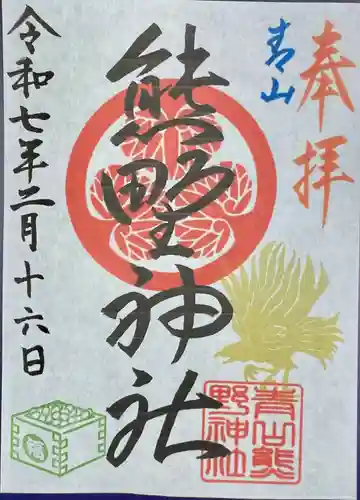 奉拝
青山
熊野神社
令和七年二月十六日
青山熊
野神社
福